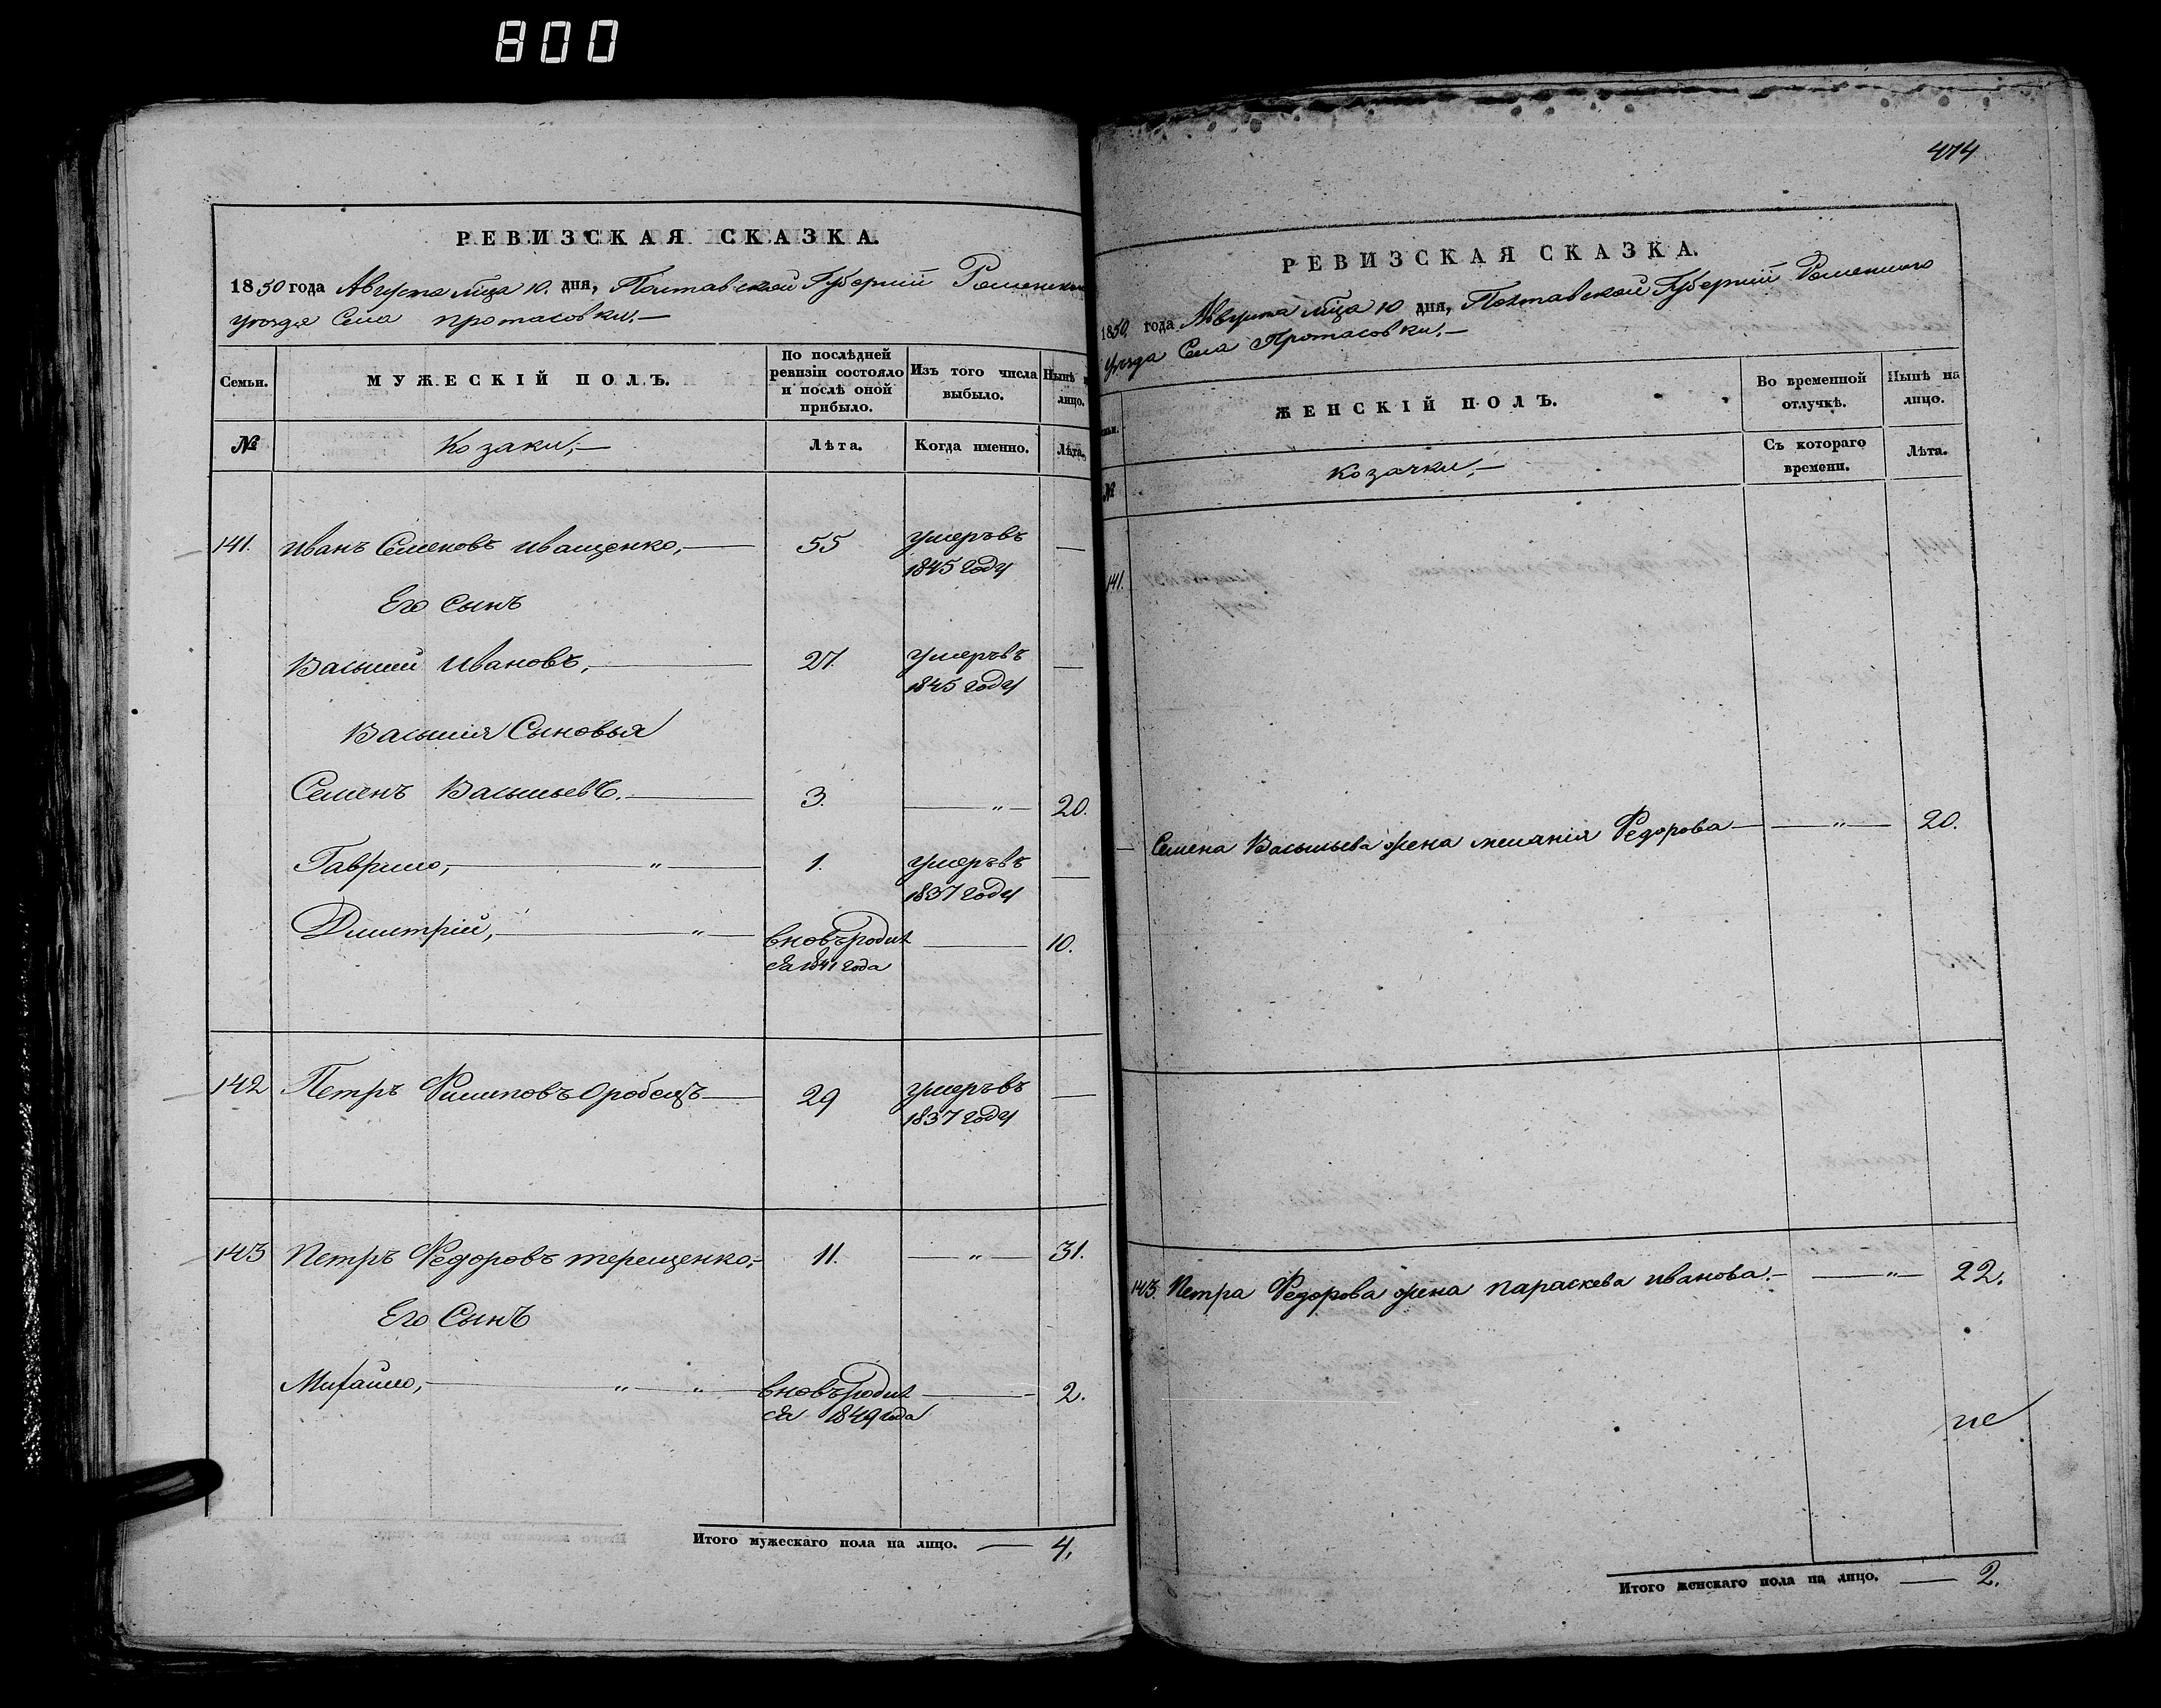 800
РЕВИЗСКАЯ СКАЗКА.
1850 года Августа мѣца 10. дня, Полтавской Губерніи Роменскаго
уѣзда Села Протасовки.—
Семьи.
МУЖЕСКІЙ ПОЛЪ.
По послѣдней ревизіи состояло и послѣ оной прибыло.
Изъ того числа выбыло.
Нынѣ на лицо.
№
Козаки;—
Лѣта.
Когда именно.
Лѣта.
141. Иванъ Семеновъ Иващенко,— 55 умеръ въ —
1845 году
Его Сынъ
Василий Ивановъ,— 27. умеръ въ —
1845 году
Василия Сыновья
Семенъ Васильевъ.— 3. —„— 20.
Гаврило,—„— 1. умеръ въ —
1837 году
Дмитрій,—„— вновь родил — 10.
ся 1841 года
142 Петръ Филиповъ Оробецъ— 29 умеръ въ —
1837 году
143 Петръ Федоровъ Терещенко,— 11. —„— 31.
Его Сынъ
Михайло,—„—„— вновь родил — 2.
ся 1849 года
Итого мужескаго пола на лицо. — 4.
474
РЕВИЗСКАЯ СКАЗКА.
1850, года Августа мѣца 10 дня, Полтавской Губерніи Роменскаго
уѣзда Села Протасовки.—
Семьи.
ЖЕНСКІЙ ПОЛЪ.
Во временной отлучкѣ.
Нынѣ на лицо.
№
Козачки;—
Съ котораго времени.
Лѣта.
141.
Семена Васильева жена Меланія Федорова— —„— 20.
143. Петра Федорова жена Параскева Иванова.— —„— 22.
Итого женскаго пола на лицо. — 2.